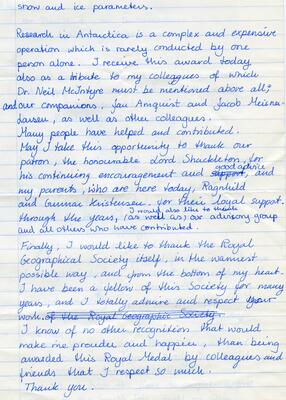 snow and ice parameters.
Research in Antarctica is a complex and expensive
operation which is rarely conducted by one
person alone. I receive this award today
also as a tribute to my colleagues of which
Dr. Neil McIntyre must be mentioned above all;
and our companions, Jan Almquist and Jacob Meisna-
Larsen, as well as other colleagues.
Many people have helped and contributed.
May I take this opportunity to thank our
patron, the honourable Lord Shackleton, for
good advice
his continuing encouragement and support, and
my parents, who are here today, Ragnhild
and Gunnar Kristensen, for their loyal support
I would also like to thank
through the years, (as well as) our advisory group
and all others who have contributed.
Finally, I would like to thank the Royal
Geographical Society itself, in the warmest
possible way, and from the bottom of my heart.
I have been a fellow of this Society for many
years, and I totally admire and respect your
work of the Royal Geographic Society.
I know of no other recognition that would
make me prouder and happier, than being
awarded this Royal Medal by colleagues and
friends that I respect so much.
Thank you.